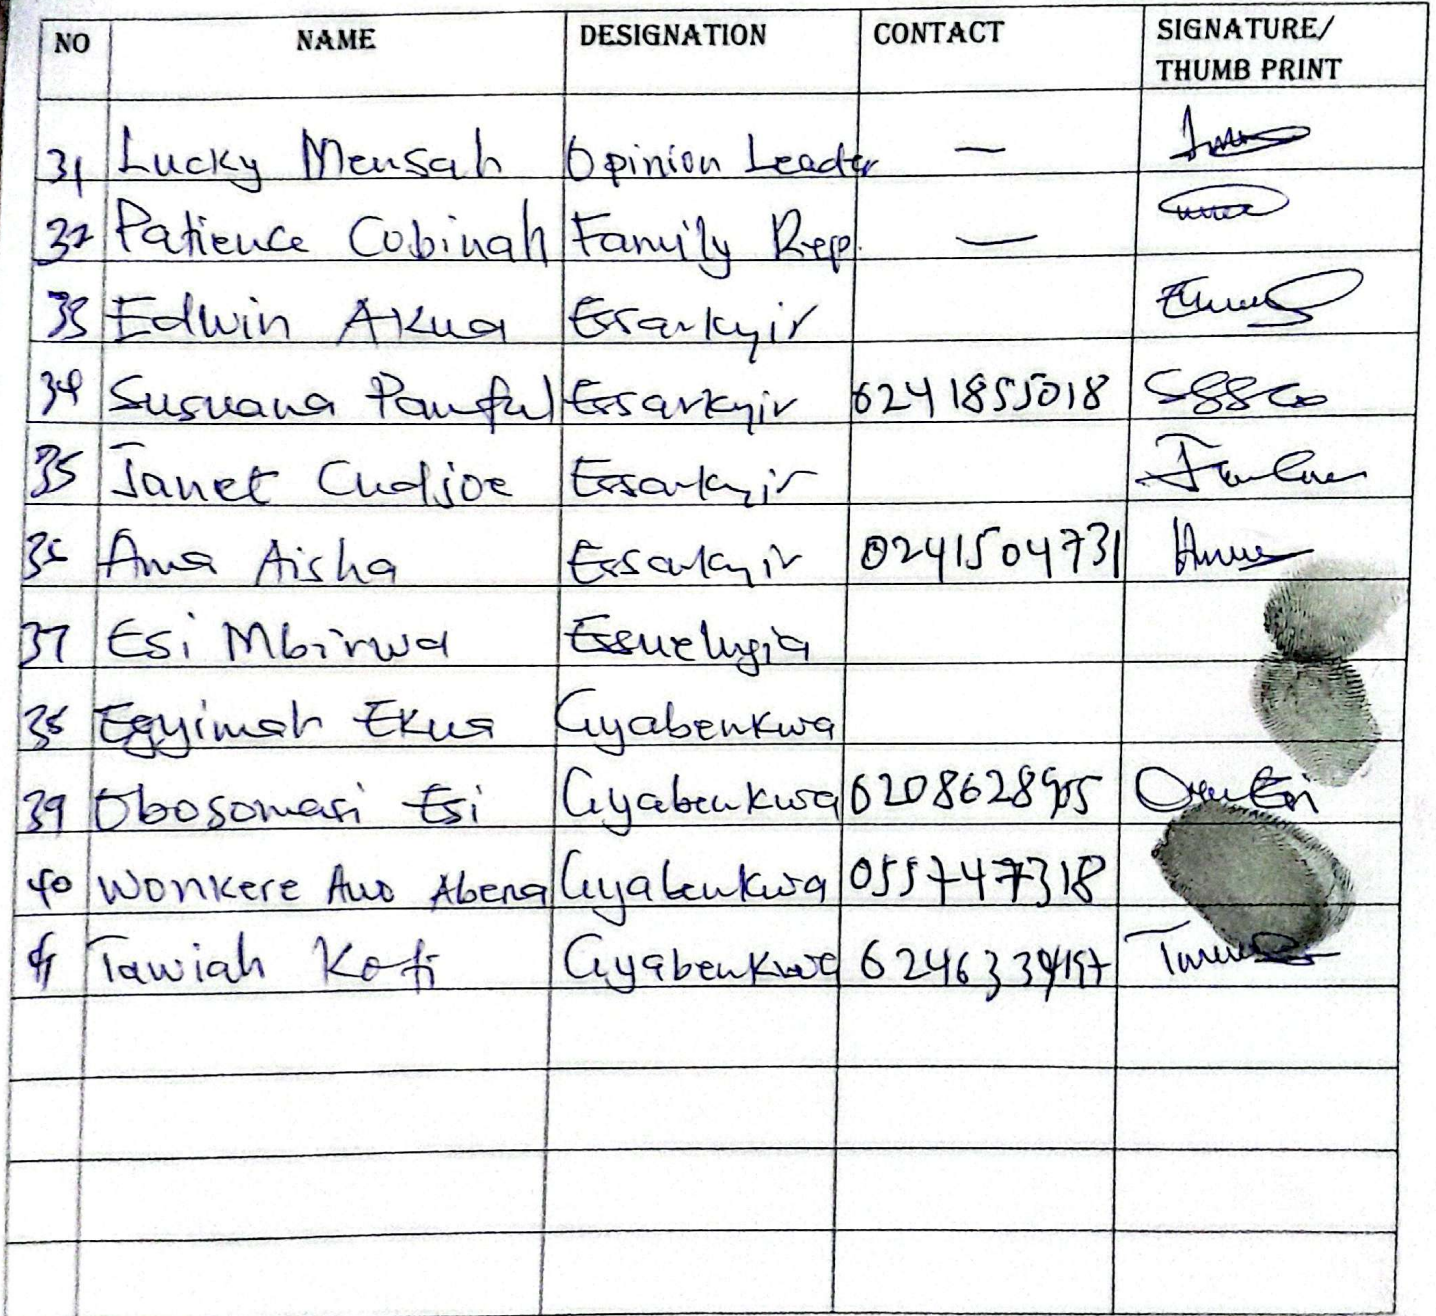 NO NAME DESIGNATION CONTACT SIGNATURE/
THUMB PRINT
31 Lucky Mensah Opinion Leader —
32 Patience Cobinah Family Rep. —
33 Edwin Akua Essarkyir
34 Susuana Panful Essarkyir 0241855018
35 Janet Cudjoe Essarkyir
36 Ama Aisha Essarkyir 0241504731
37 Esi Mbirwa
38 Egyimah Ekua Gyabenkwa
39 Obosomasi Esi Gyabenkwa
40 Wonkere Awo Abena Gyabenkwa 055747318
41 Tawiah Kofi Gyabenkwa